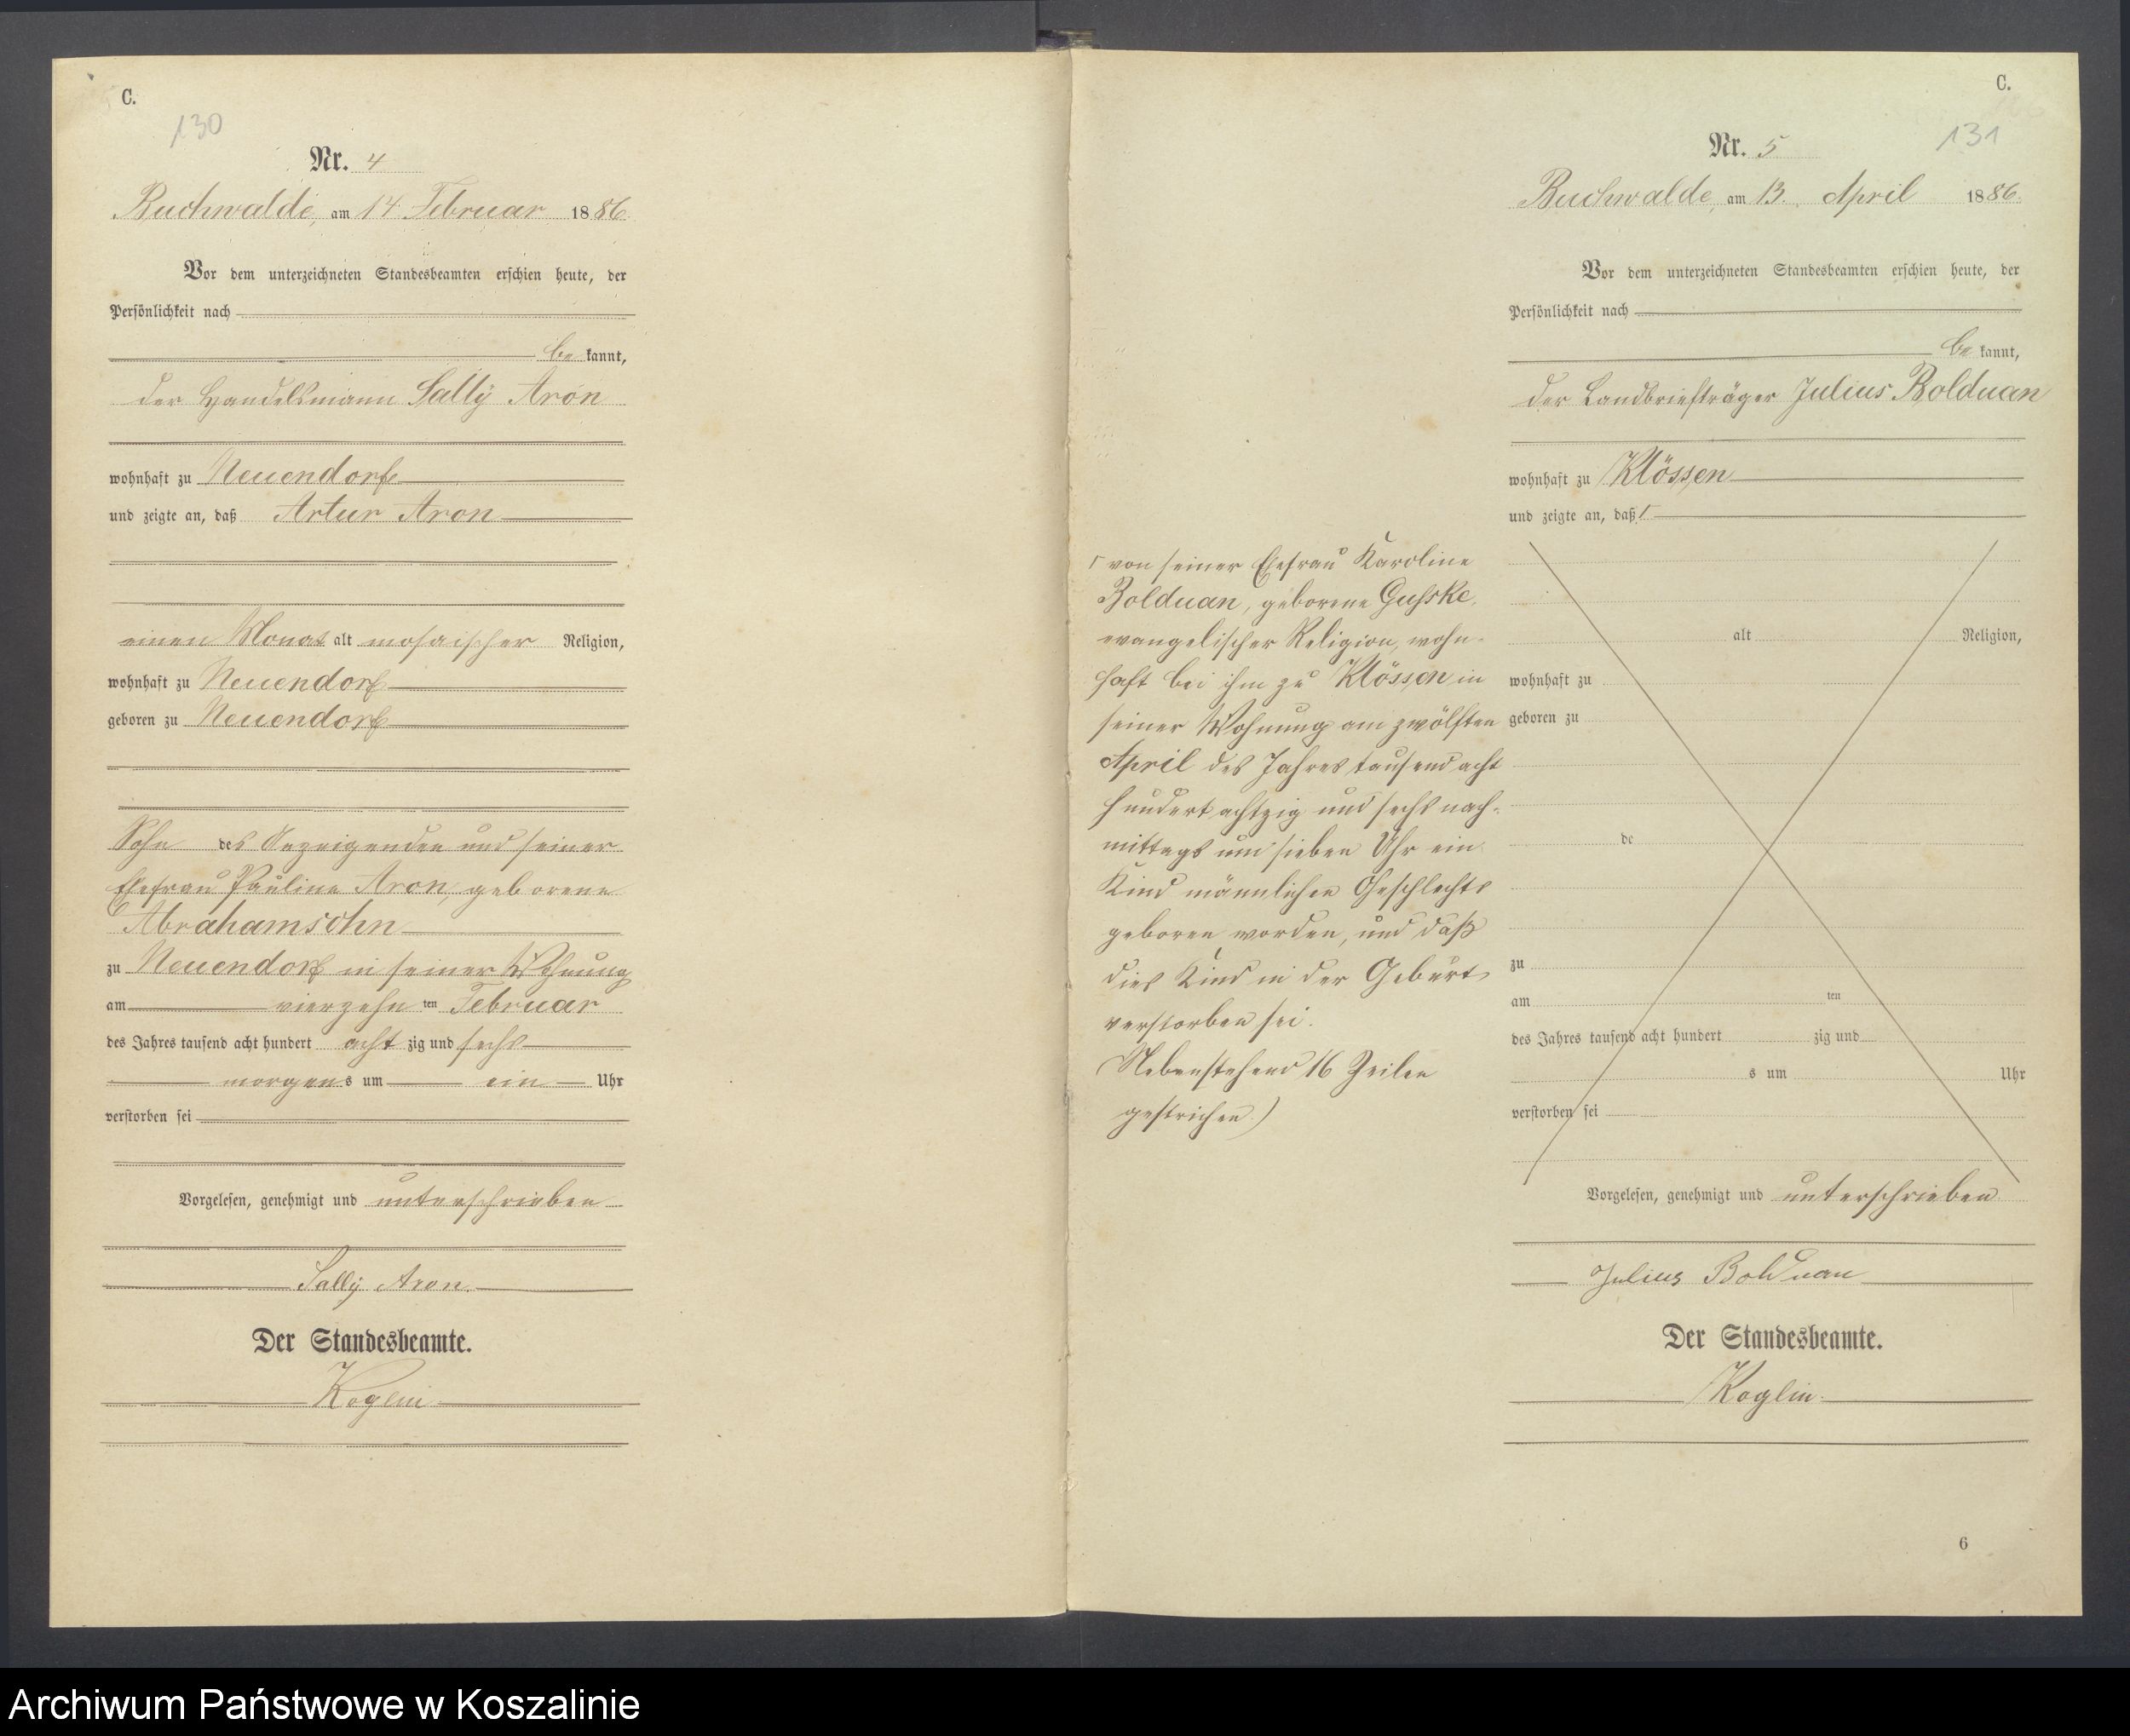 C.
130
Nr. 4
Buchwalde, am 14. Februar 1886.
Vor dem unterzeichneten Standesbeamten erschien heute, der
Persönlichkeit nach
be kannt,
der Handelsmann Sally Aron
wohnhaft zu Neuendorf
und zeigte an, daß Artur Aron
einen Monat alt mosaischer Religion,
wohnhaft zu Neuendorf
geboren zu Neuendorf
Sohn des Anzeigenden und seiner
Ehefrau Pauline Aron, geborene
Abrahamsohn
zu Neuendorf in seiner Wohnung
am vierzehn ten Februar
des Jahres tausend acht hundert acht zig und sechs
morgens um ein Uhr
verstorben sei
Vorgelesen, genehmigt und unterschrieben
Sally Aron.
Der Standesbeamte.
Koglin
C.
131
Nr. 5
Buchwalde, am 13. April 1886.
Vor dem unterzeichneten Standesbeamten erschien heute, der
Persönlichkeit nach
be kannt,
der Landbriefträger Julius Bolduan
wohnhaft zu Klössen
und zeigte an, daß
von seiner Ehefrau Karoline
Bolduan, geborene Gußke,
evangelischer Religion, wohn-
haft bei ihm zu Klössen in
seiner Wohnung am zwölften
April des Jahres tausend acht
hundert achtzig und sechs nach-
mittags um sieben Uhr ein
Kind männlichen Geschlechts
geboren worden, und daß
dies Kind in der Geburt
verstorben sei.
Nebenstehend 16 Zeilen
gestrichen.)
alt Religion,
wohnhaft zu
geboren zu
de
zu
am ten
des Jahres tausend acht hundert zig und
s um Uhr
verstorben sei
Vorgelesen, genehmigt und unterschrieben
Julius Bolduan
Der Standesbeamte.
Koglin
6
Archiwum Państwowe w Koszalinie